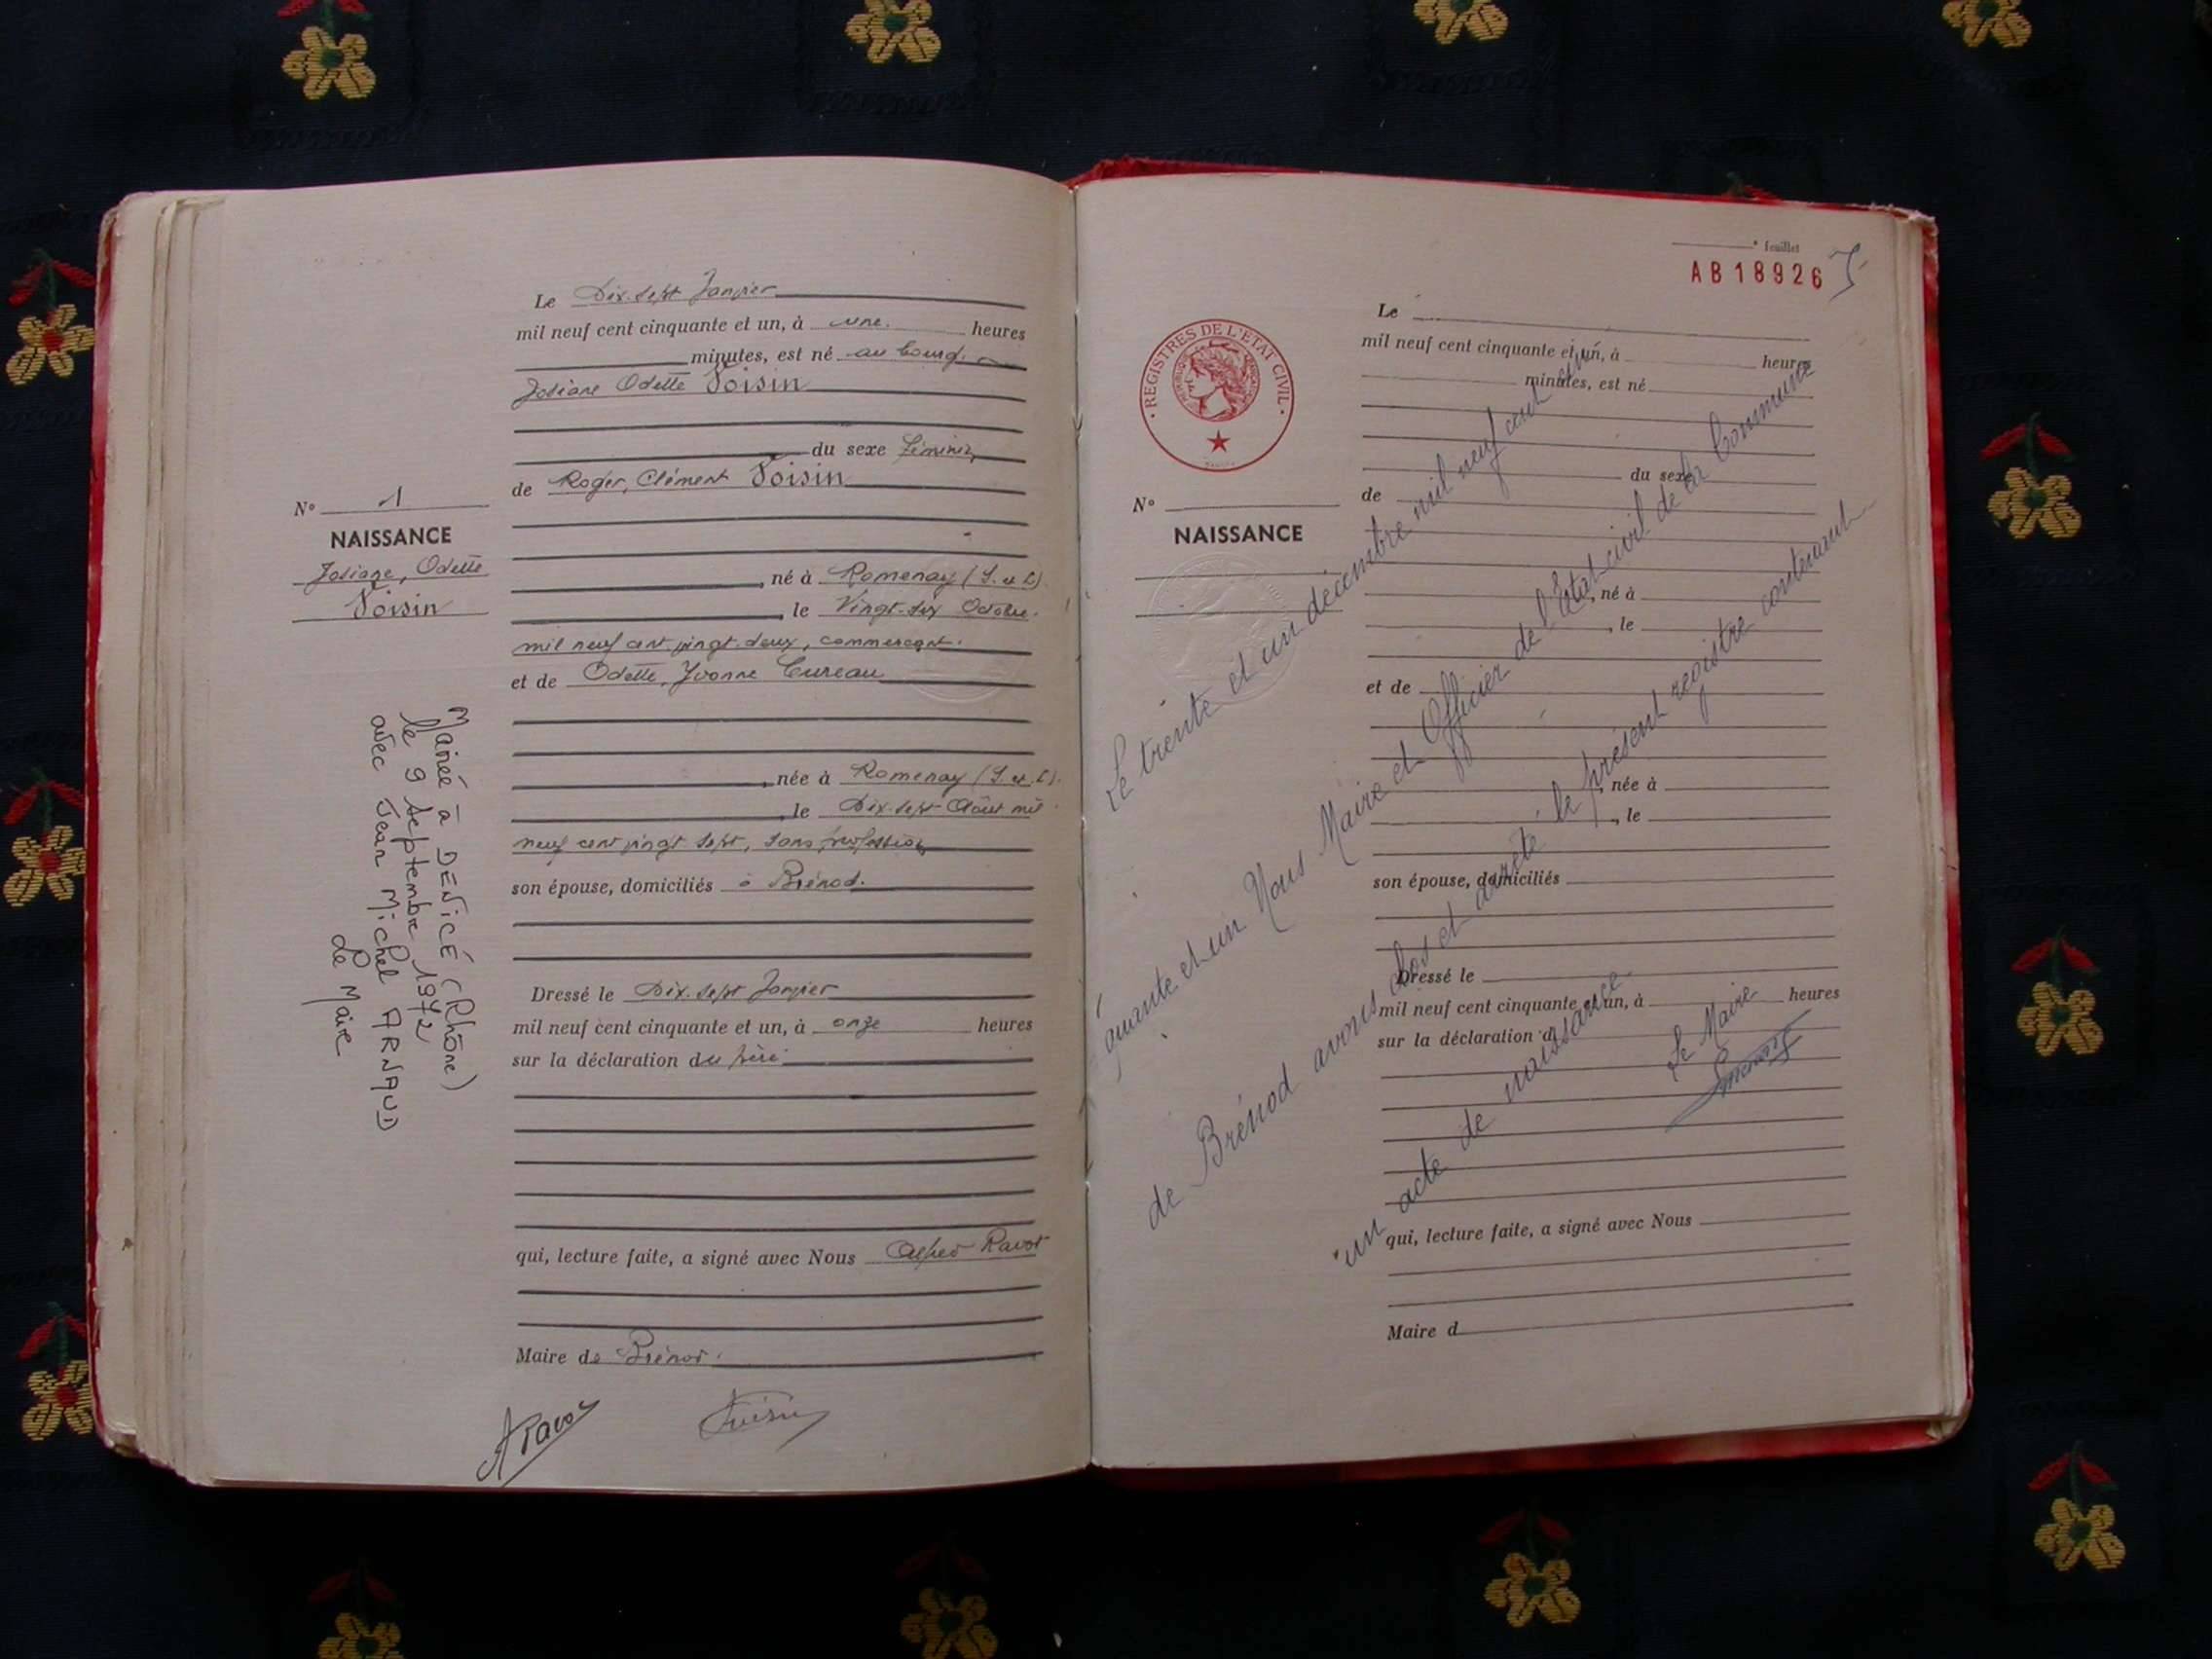 Le Dix-sept Janvier
mil neuf cent cinquante et un, à une heures
minutes, est né au bourg
Josiane Odette Voisin
du sexe féminin
de Roger, Clément Voisin
né à Romenay (S. et L).
le Vingt-six Octobre
mil neuf cent vingt-deux, commerçant.
et de Odette, Yvonne Cureau
née à Romenay (S. et L).
le Dix-sept Août mil
neuf cent vingt sept, sans profession
son épouse, domiciliés à Brénod.
Dressé le Dix-sept Janvier
mil neuf cent cinquante et un, à onze heures
sur la déclaration du père
qui, lecture faite, a signé avec Nous Alfred Ravot
Maire de Brénod.
ARavot
Voisin
N° 1
NAISSANCE
Josiane, Odette
Voisin
Mariée à DENICÉ (Rhône)
le 9 Septembre 1972
avec Jean Michel ARNAUD
Le Maire
° feuillet
AB 18926
5
REGISTRES DE L'ÉTAT CIVIL
RÉPUBLIQUE FRANÇAISE
N°
NAISSANCE
Le
mil neuf cent cinquante et un, à heures
minutes, est né
du sexe
de
, né à
, le
et de
, née à
, le
son épouse, domiciliés
Dressé le
mil neuf cent cinquante et un, à heures
sur la déclaration d
qui, lecture faite, a signé avec Nous
Maire d
Le trente et un décembre mil neuf cent cin
quante et un Nous Maire et Officier de l'Etat-civil de la Commune
de Brénod avons clos et arrêté le présent registre contenant
un acte de naissance.
Le Maire